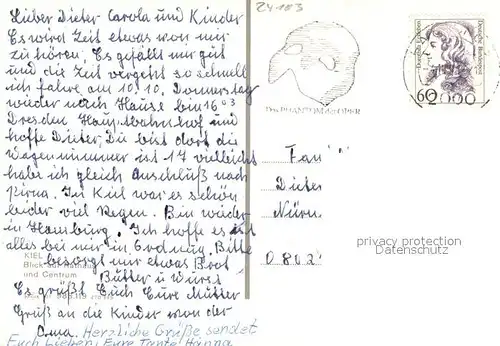 Lieber Dieter Carola und Kinder
Es wird Zeit etwas von mir
zu hören. Es gefällt mir gut
und die Zeit vergeht so schnell
ich fahre am 10.10. Donnerstag
wieder nach Hause bin 16 03
Dresden Hauptbahnhof und
hoffe Dieter, Du bist dort die
Wagennummer ist 17 vielleicht
habe ich gleich Anschluß nach
Pirna. In Kiel war es schön
leider viel Regen. Bin wieder
in Hamburg. Ich hoffe es ist
alles bei mir in Ordnung. Bitte
besorgt mir etwas Brot
Butter u Wurst
Es grüßt Euch Eure Mutter
Gruß an die Kinder von der
Oma. Herzliche Grüße sendet
Euch Lieben, Eure Tante Hanna
KIEL
Blick auf Rathaus
und Centrum
24103
Das PHANTOM der OPER
Deutsche Bundespost
60
2000
Fam
Dieter
Nürn
O 802
privacy protection
Datenschutz